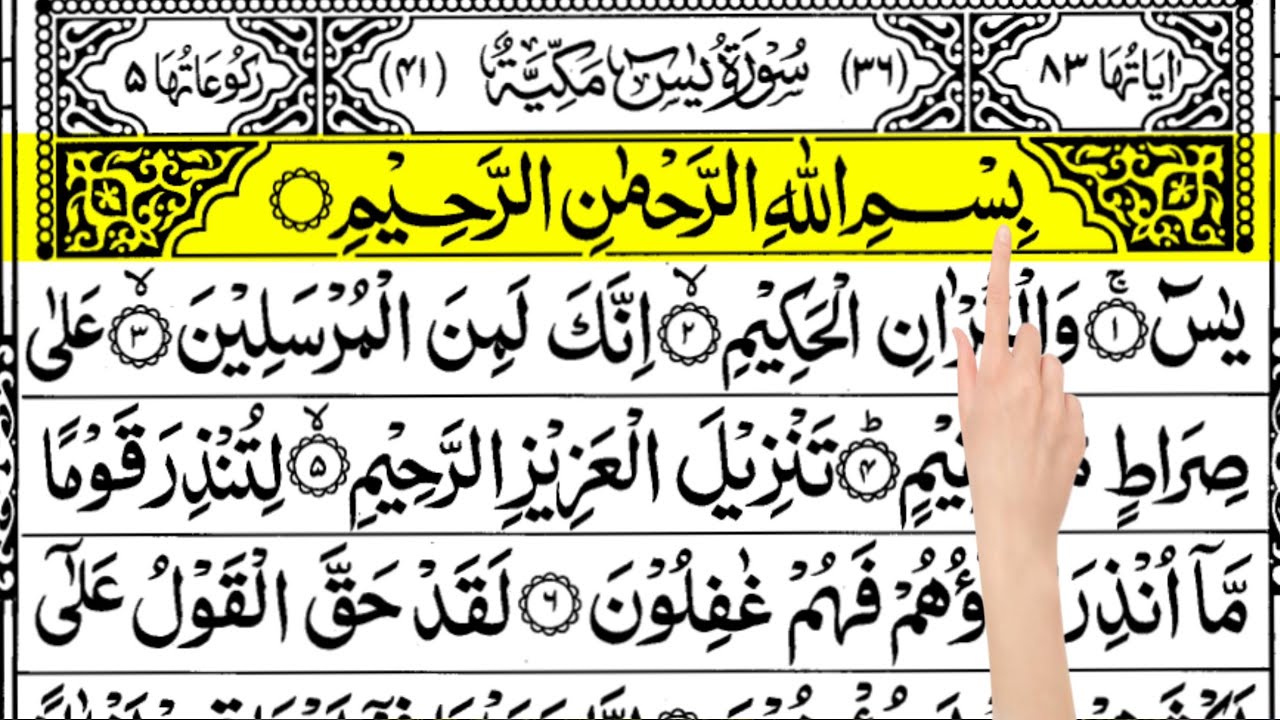 اٰيَاتُهَا ٨٣ (٣٦) سُوْرَةُ يٰسٓ مَكِّيَّةٌ (٤١) رُكُوْعَاتُهَا ٥
بِسْمِ اللّٰهِ الرَّحْمٰنِ الرَّحِيْمِ
يٰسٓ ۚ ﴿١﴾ الْحَكِيْمِ ۙ ﴿٢﴾ اِنَّكَ لَمِنَ الْمُرْسَلِيْنَ ۙ ﴿٣﴾ عَلٰى
صِرَاطٍ ؕ ﴿٤﴾ تَنْزِيْلَ الْعَزِيْزِ الرَّحِيْمِ ۙ ﴿٥﴾ لِتُنْذِرَ قَوْمًا
مَّآ اُنْذِرَ فَهُمْ غٰفِلُوْنَ ﴿٦﴾ لَقَدْ حَقَّ الْقَوْلُ عَلٰٓى